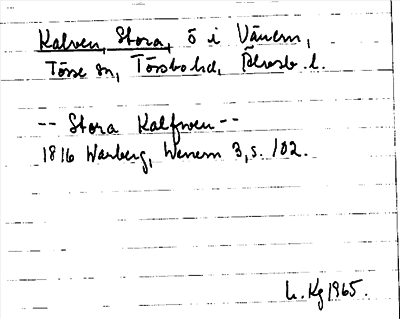 Kalven, Stora, ö i Vänern,
Tösse sn, Tössbo hd, Älvsb. l.
-- Stora Kalfwen --
1816 Warberg, Wenern 3, s. 102.
1965.